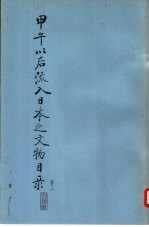 甲午以后流入日本之文物目录